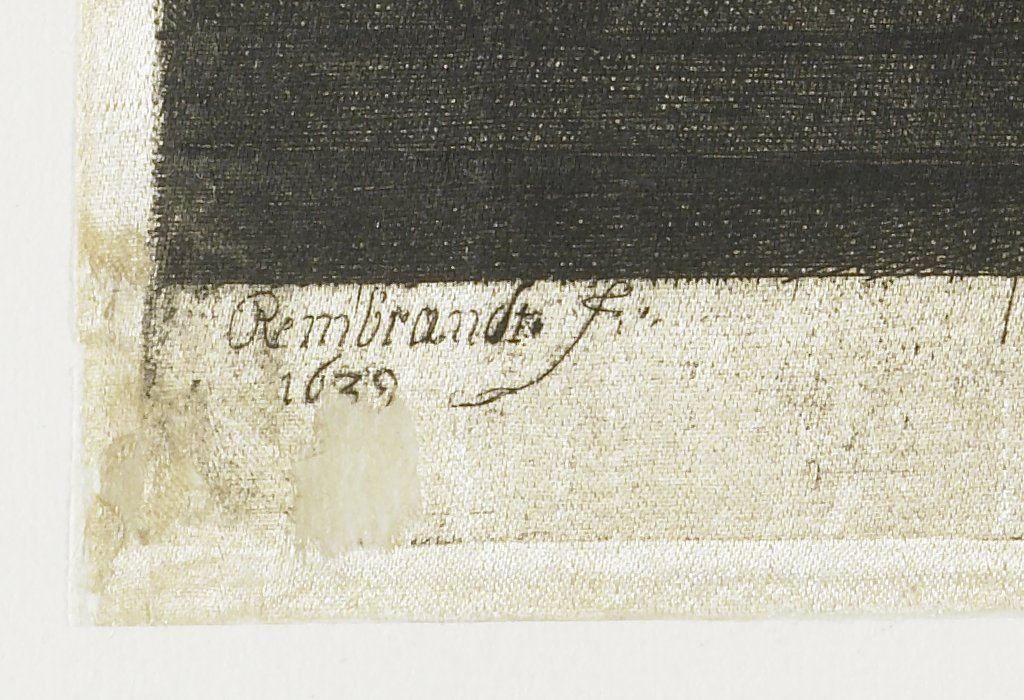 Rembrandt f.
1639